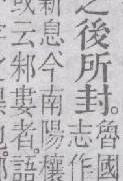 之後所封。魯國
志作
新息、今南陽穰
或云邾婁者。語